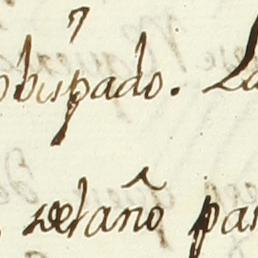 obispado. La
verano par